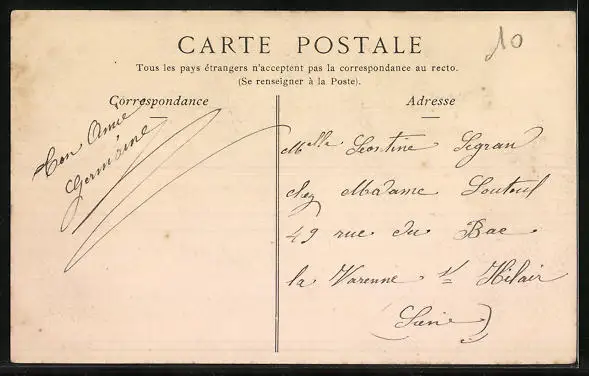 CARTE POSTALE
10
Tous les pays étrangers n'acceptent pas la correspondance au recto.
(Se renseigner à la Poste).
Correspondance
Ton Amie
Germaine
Adresse
Melle Léontine Legran
chez Madame
49 rue du Bac
la Varenne St Hilair
(Seine)